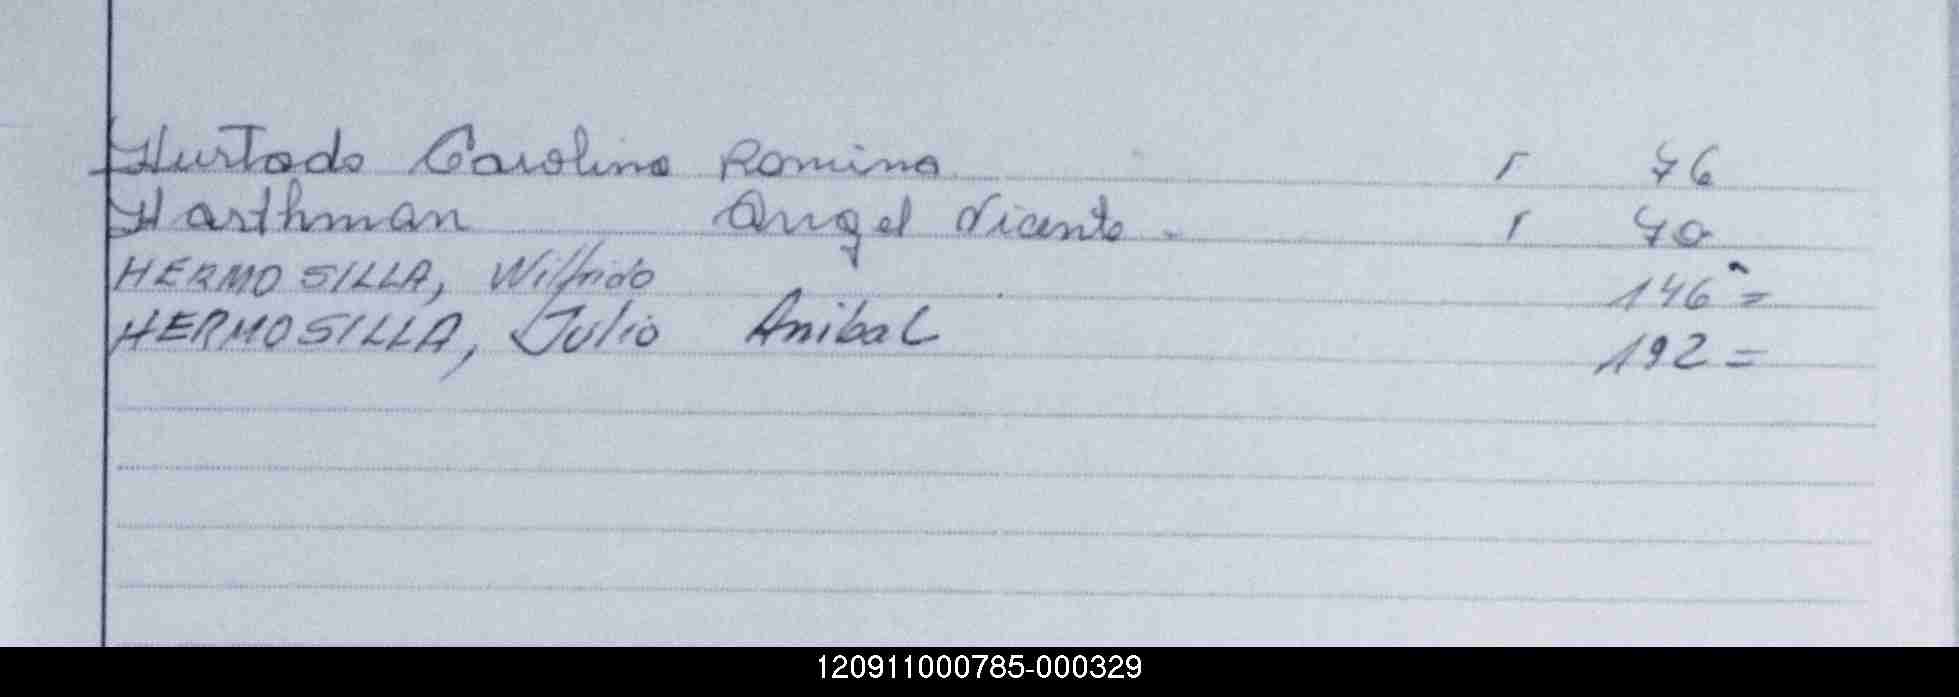 Hurtado Carolina Romina r 76
Harthman Angel Vicente . r 70
HERMOSILLA, Wilfrido 146 =
HERMOSILLA, Julio Anibal 192 =
120911000785-000329